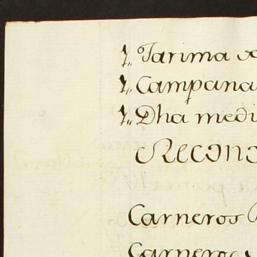 1,, Tarima
1,, Campana
1,, Dha medi
Recono
Carneros
Carneros